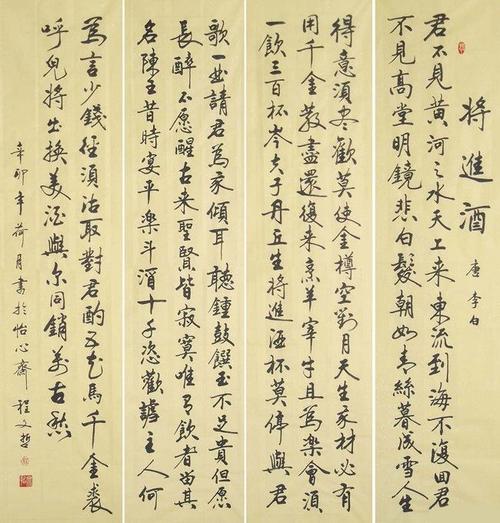 将進酒
唐李白
君不見黄河之水天上来東流到海不復回君
不見高堂明鏡悲白髮朝如青絲暮成雪人生
得意須尽歡莫使金樽空對月天生我材必有
用千金散盡還復来烹羊宰牛且為樂會須
一飲三百杯岑夫子丹丘生将進酒杯莫停與君
歌一曲請君為我傾耳聽鍾鼓饌玉不足貴但愿
長醉不愿醒古来聖賢皆寂寞唯有飲者留其
名陳王昔時宴平楽斗酒十千恣歡謔主人何
為言少錢徑須沽取對君酌五花馬千金裘
呼兒将出換美酒與尔同銷萬古愁
辛卯年荷月書於怡心齋程文哲